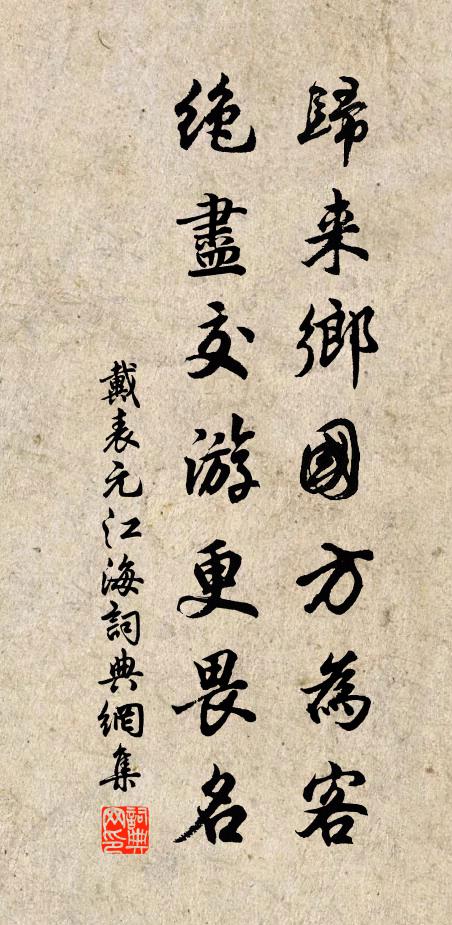 歸来鄉國方為客
絶盡交游更畏名
戴表元江海詞典網集
詞典網印